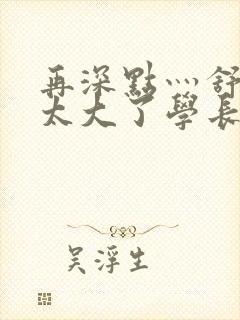 再深點灬舒
太大了學長
吳浮生